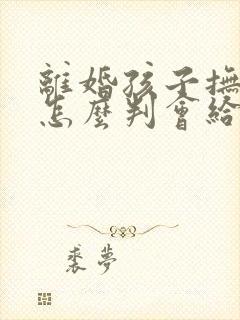 離婚孩子撫
怎麼判會給
裘夢